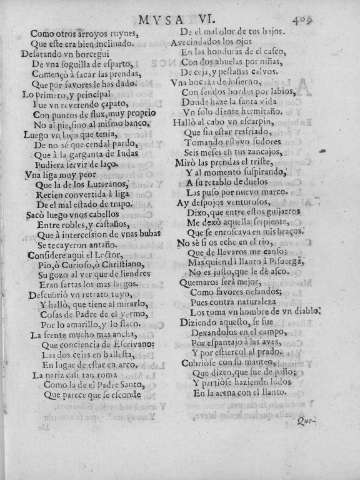 MVSA VI. 409
Como otros arroyos ruynes,
Que este era bien inclinado.
Desatando vn borcegui
De vna soguilla de esparto,
Començò à sacar las prendas,
Que por fauores le has dado.
Lo primero, y principal
Fue vn reuerendo çapato,
Con puntos de flux, muy proprio
No al pie, sino al mismo banco,
Luego vn lazo que tenia,
De no sé que cendal pardo,
Que à la garganta de Iudas
Pudiera seruir de lazo.
Vna liga muy peor
Que la de los Luteranos,
Recien conuertida à liga
De el mal estado de trapo.
Sacò luego vnos cabellos
Entre robles, y castaños,
Que à intercesion de vnas bubas
Se te cayeron antaño.
Considere aqui el Lector,
Pio, ò Curioso, ò Christiano,
Su gozo al ver que de liendres
Eran sartas los mas largos.
Descubriò vn retrato tuyo,
Y hallò, que tiene al mirarlo,
Cosas de Padre de el yermo,
Por lo amarillo, y lo flaco.
La frente mucho mas ancha,
Que conciencia de Escriuano:
Las dos cejas en ballesta,
En lugar de estar en arco.
La nariz casi tan roma
Como la de el Padre Santo,
Que parece que se esconde
De el mal olor de tus bajos.
Avecindados los ojos
En las honduras de el casco,
Con dos abuelas por niñas,
De ceja, y pestañas calvos.
Vna bocaza de Infierno,
Con sendos bordes por labios,
Donde haze la santa vida
Vn solo diente hermitaño.
Hallò al cabo vn escarpin,
Que sin estar resfriado,
Tomando estavo sudores
Seis meses en tus zancajos,
Mirò las prendas el triste,
Y al momento suspirando,
A si retablo de duelos
Las puso por nueuo marco.
Ay despojos venturosos,
Dixo, que entre estos guijarros
Me dexò aquella serpiente,
Que se enroscava en mis braços.
No sè si os eche en el rio,
Que de lleuaros me canso;
Mas quien dà llanto à Pisuerga,
No es justo, que le dè asco.
Quemaros serà mejor,
Como fauores nefandos;
Pues contra naturaleza
Los toma vn hombre de vn diablo;
Diziendo aquesto, se fue
Dexandolos en el campo,
Por espantajo à las aves,
Y por estiercol al prado.
Cubriose con su manteo,
Que dizen, que fue de justo;
Y partiose haziendo lodos
En la arena con el llanto.
Que-